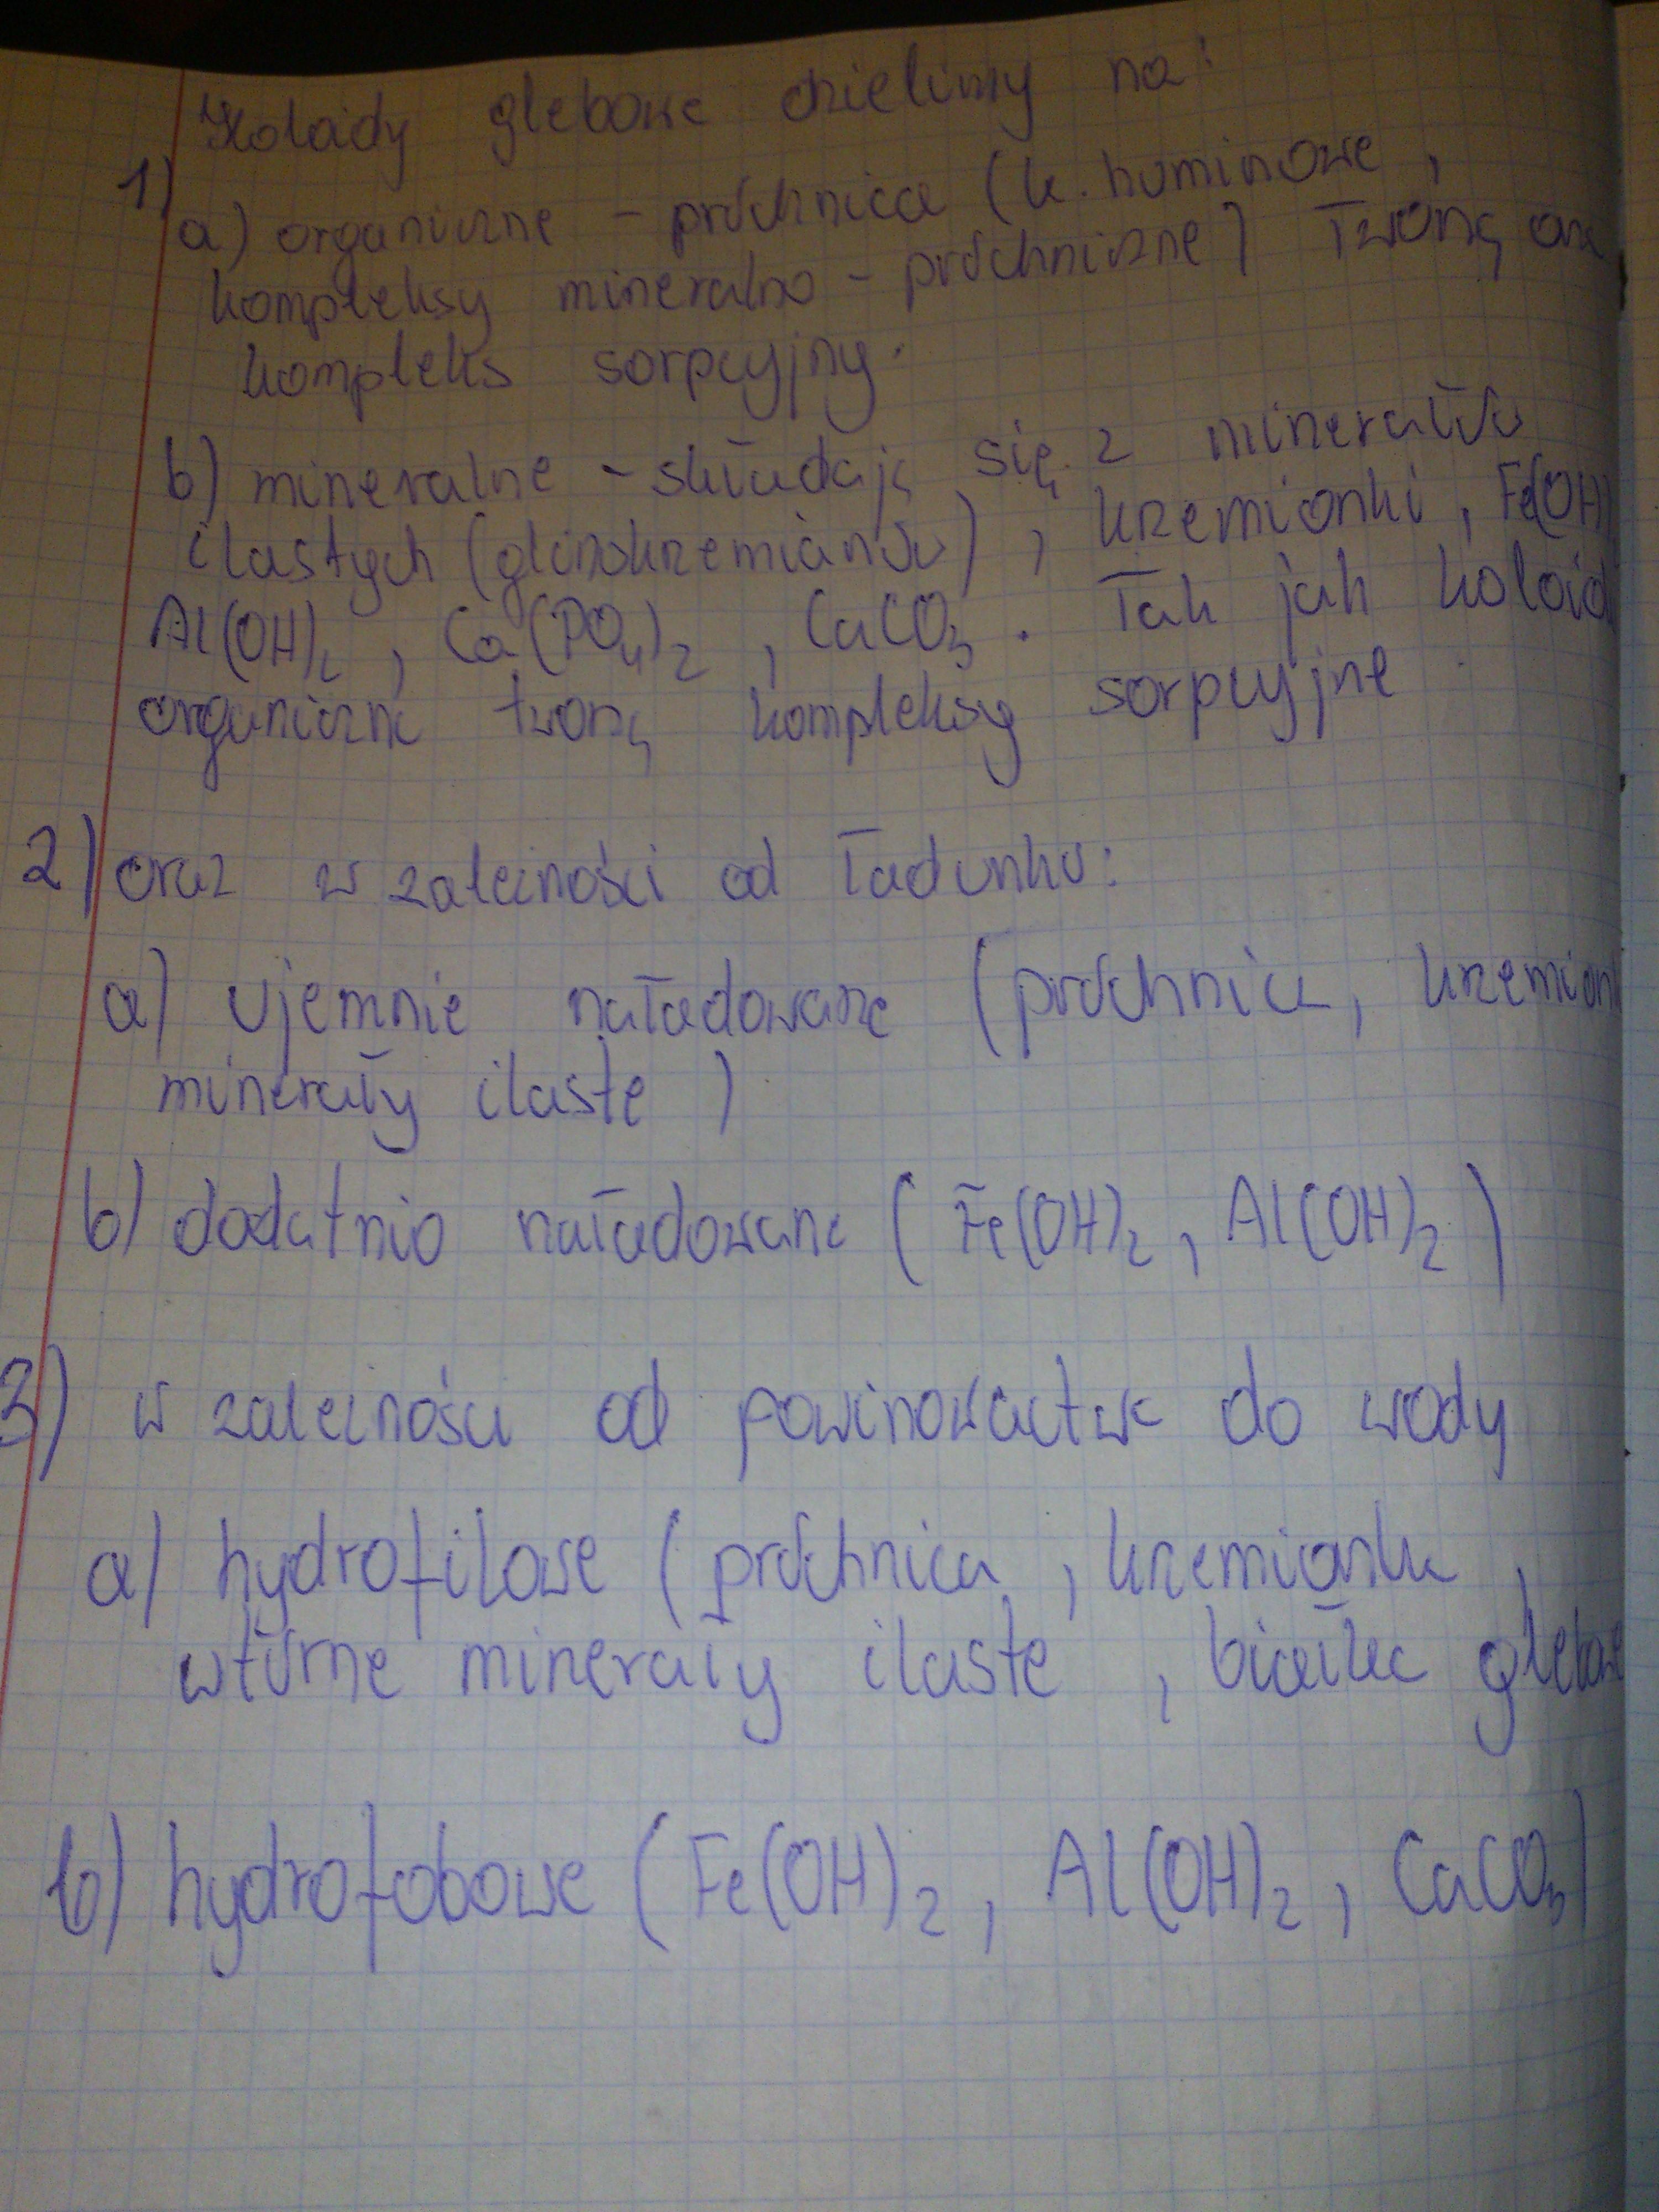 Koloidy glebowe dzielimy na:
1)
a) organiczne - próchnica (k. huminowe,
kompleksy mineralno - próchniczne) Tworzą one
kompleks sorpcyjny.
b) mineralne - składają się z minerałów
ilastych (glinokrzemianów), krzemionki, Fe(OH)
Al(OH)2, Ca(PO4)2, CaCO3. Tak jak koloid
organiczne tworzą kompleksy sorpcyjne.
2) oraz w zależności od ładunku:
a) ujemnie naładowane (próchnica, krzemionk
minerały ilaste)
b) dodatnio naładowane (Fe(OH)2, Al(OH)2)
3) w zależności od powinowactwa do wody
a) hydrofilowe (próchnica, krzemionka,
wtórne minerały ilaste, białka glebowe
b) hydrofobowe (Fe(OH)2, Al(OH)2, CaCO3)